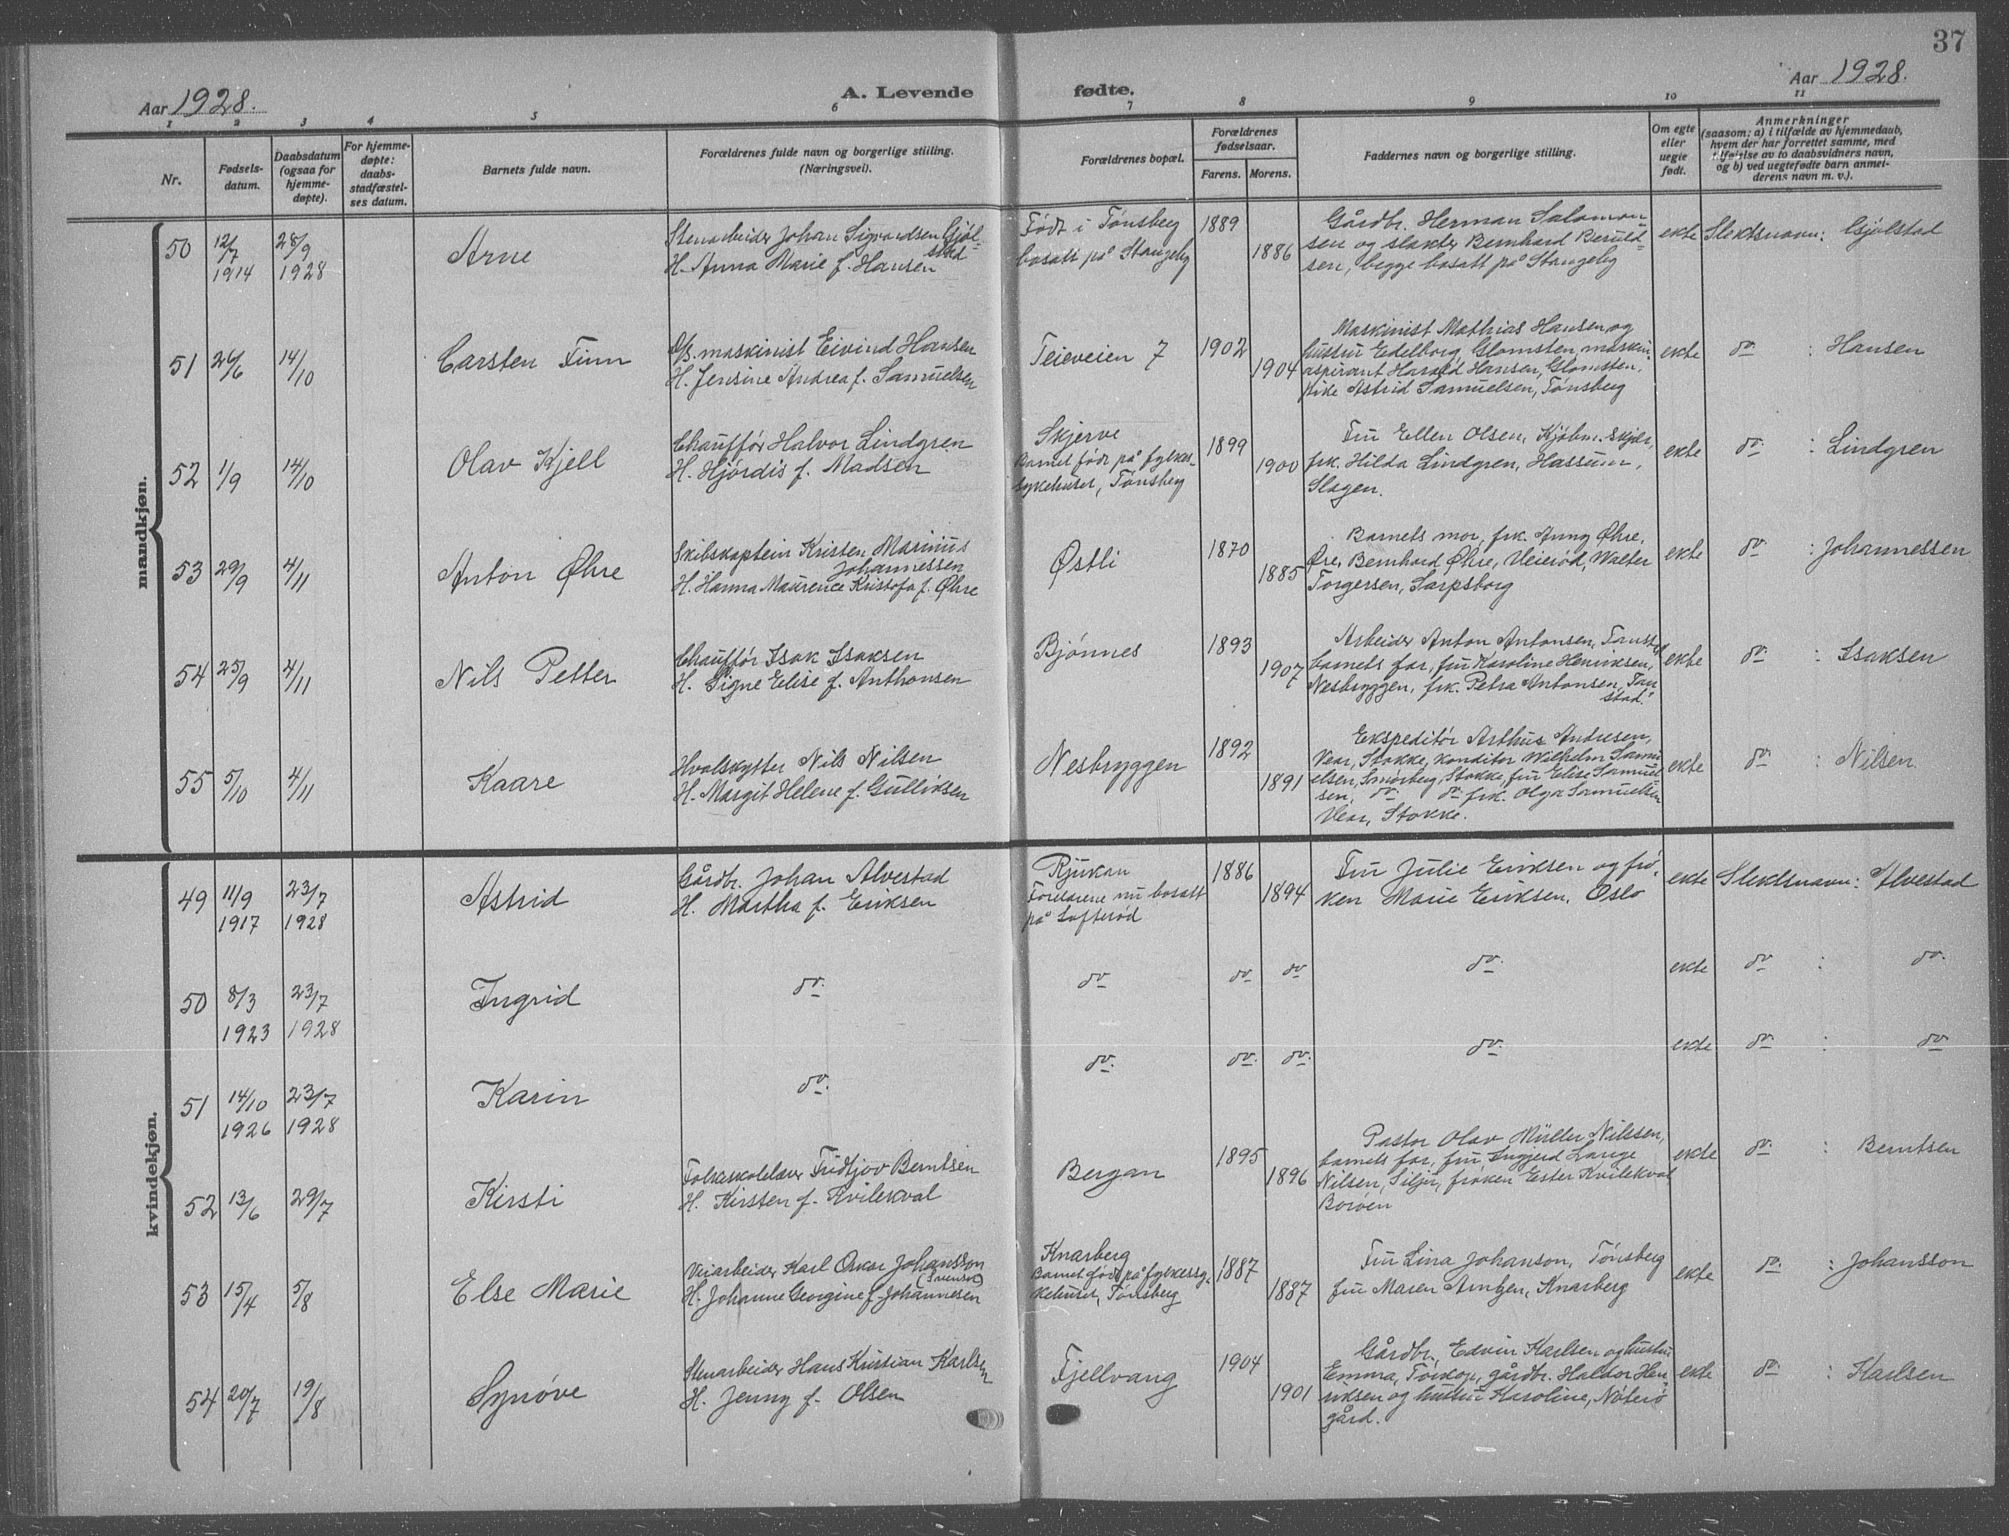 37
Aar 1928. A. Levende fødte. Aar 1928.
1 2 3 4 5 6 7 8 9 10 11
Nr.
Fødsels-
datum.
Daabsdatum
(ogsaa for
hjemme-
døpte).
For hjemme-
døpte:
daabs-
stadfæstel-
ses datum.
Barnets fulde navn.
Forældrenes fulde navn og borgerlige stilling.
(Næringsvei).
Forældrenes bopæl.
Forældrenes
fødselsaar.
Farens. Morens.
Faddernes navn og borgerlige stilling.
Om egte
eller
uegte
født.
Anmerkninger
(saasom: a) i tilfælde av hjemmedaab,
hvem der har forrettet samme, med
tilføielse av to daabsvidners navn,
og b) ved uegtefødte barn anmel-
derens navn m. v.).
mandkjøn.
50
12/7
1914
28/9
1928
Arne
Stenarbeider Johan Sigvardsen Gjøl-
stad
H. Anna Marie f. Hansen
Født i Tønsberg
bosatt på Stangeby
1889
1886
Gårdbr. Herman Salomon-
sen og slakter Bernhard Beruld-
sen, begge bosatt på Stangeby
ekte
Slektsnavn: Gjølstad
51
26/6
14/10
Carsten Finn
D/s. maskinist Eivind Hansen
H. Jensine Andrea f. Samuelsen
Teieveien 7
1902
1904
Maskinist Mathias Hansen og
hustru Edelborg, Glomsten, maskin-
aspirant Harald Hansen, Glomsten,
Astrid Samuelsen, Tønsberg
ekte
do : Hansen
52
1/9
14/10
Olav Kjell
Chauffør Halvor Lindgren
H. Hjørdis f. Madsen
Skjerve
Barnet født på fylkes-
sykehuset, Tønsberg
1899
1900
Fru Ellen Olsen, Kjøbm. Skjer,
frk. Hilda Lindgren, Hassum,
Slagen.
ekte
do : Lindgren
53
29/9
4/11
Anton Øhre
Skibskaptein Kristen Marinius
Johannessen
H. Hanna Maurence Kristofa f. Øhre
Østli
1870
1885
Barnets mor, frk. Anny Øhre,
Øre, Bernhard Øhre, Veierød, Walter
Torgersen, Sarpsborg
ekte
do : Johannessen
54
25/9
4/11
Nils Petter
Chauffør Isak Isaksen
H. Signe Elise f. Anthonsen
Bjønnes
1893
1907
Arbeider Anton Antonsen,
barnets far, fru Karoline Henriksen,
Nesbryggen, frk. Petra Antonsen,
ekte
do : Isaksen
55
5/10
4/11
Kaare
Hvalskytter Nils Nilsen
H. Margit Helene f. Gulliksen
Nesbryggen
1892
1891
Ekspeditør Arthur Andresen,
Vear, Stokke, konditor Wilhelm Samu-
elsen, Smørberg, Stokke, fru Elise Samuel-
sen, do do frk. Olga Samuelsen
Vear, Stokke.
ekte
do : Nilsen
kvindekjøn.
49
11/9
1917
23/7
1928
Astrid
Gårdbr. Johan Alvestad
H. Martha f. Eriksen
Rjukan
Foreldrene nu bosatt
på Lofterød
1886
1894
Fru Julie Eriksen og frø-
ken Marie Eriksen, Oslo
ekte
Slektsnavn: Alvestad
50
8/3
1923
23/7
1928
Ingrid
do
do
do
do
do
ekte
do : do
51
14/10
1926
23/7
1928
Karin
do
do
do
do
do
ekte
do : do
52
13/6
29/7
Kirsti
Folkeskolelærer Fridtjov Berntsen
H. Kirsten f. Kvilekval
Bergan
1895
1896
Pastor Olav Müller Nilssen,
barnets far, fru Ingjerd Lange
Nilsen, Siljir, frøken Ester Kvilekval
Borøen
ekte
do : Berntsen
53
15/4
5/8
Else Marie
Veiarbeider Karl Oskar Johansson
(Svensk)
H. Johanne Georgine f. Johannesen
Knarberg
Barnet født på fylkessy-
kehuset, Tønsberg
1887
1887
Fru Lina Johanson, Tønsberg
fru Maren Arntzen, Knarberg
ekte
do : Johansson
54
20/7
19/8
Synøve
Stenarbeider Hans Kristian Karlsen
H. Jenny f. Olsen
Fjellvang
1904
1901
Gårdbr. Edvin Karlsen og hustru
Emma, Torkop, gårdbr. Haldor Hen-
riksen og hustru Karoline, Nøterø
gård.
ekte
do : Karlsen